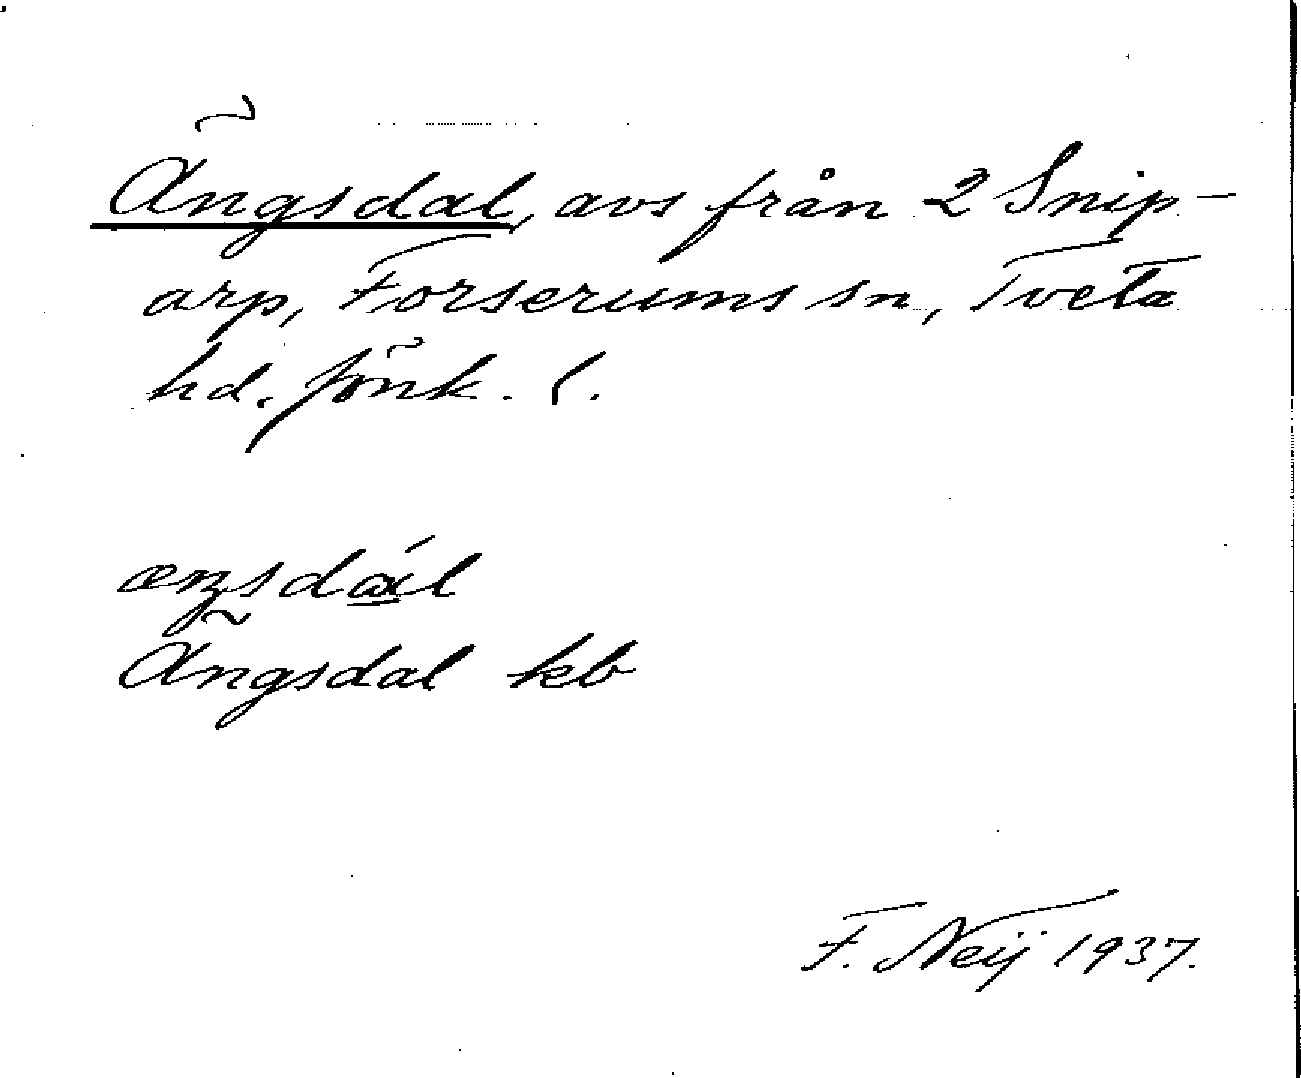 Ängsdal, avs från 2 Snip-
arp, Forserums sn, Tveta
hd. Jönk. l.
æŋsdál
Ängsdal kb
F. Neij 1937.